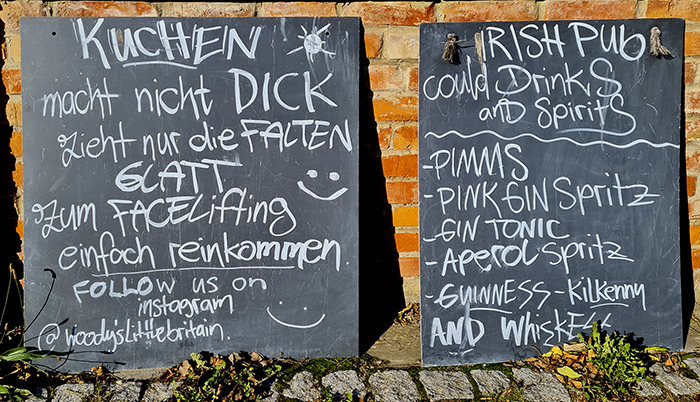 KUCHEN
macht nicht DICK
zieht nur die FALTEN
GLATT
Zum FACELifting
einfach reinkommen.
FOLLOW us on
instagram
@woody'slittlebritain.
IRISH Pub
could DRinKS
anD SpiritS
-PIMMS
-PINK GIN Spritz
-GIN TONIC
-Aperol Spritz
-GUINNESS-Kilkenny
AND WhisKEYS